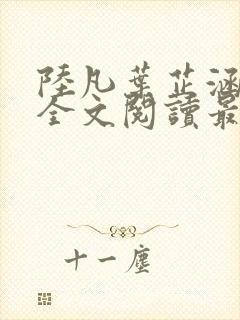 陸凡葉芷涵
全文閱讀最
十一塵